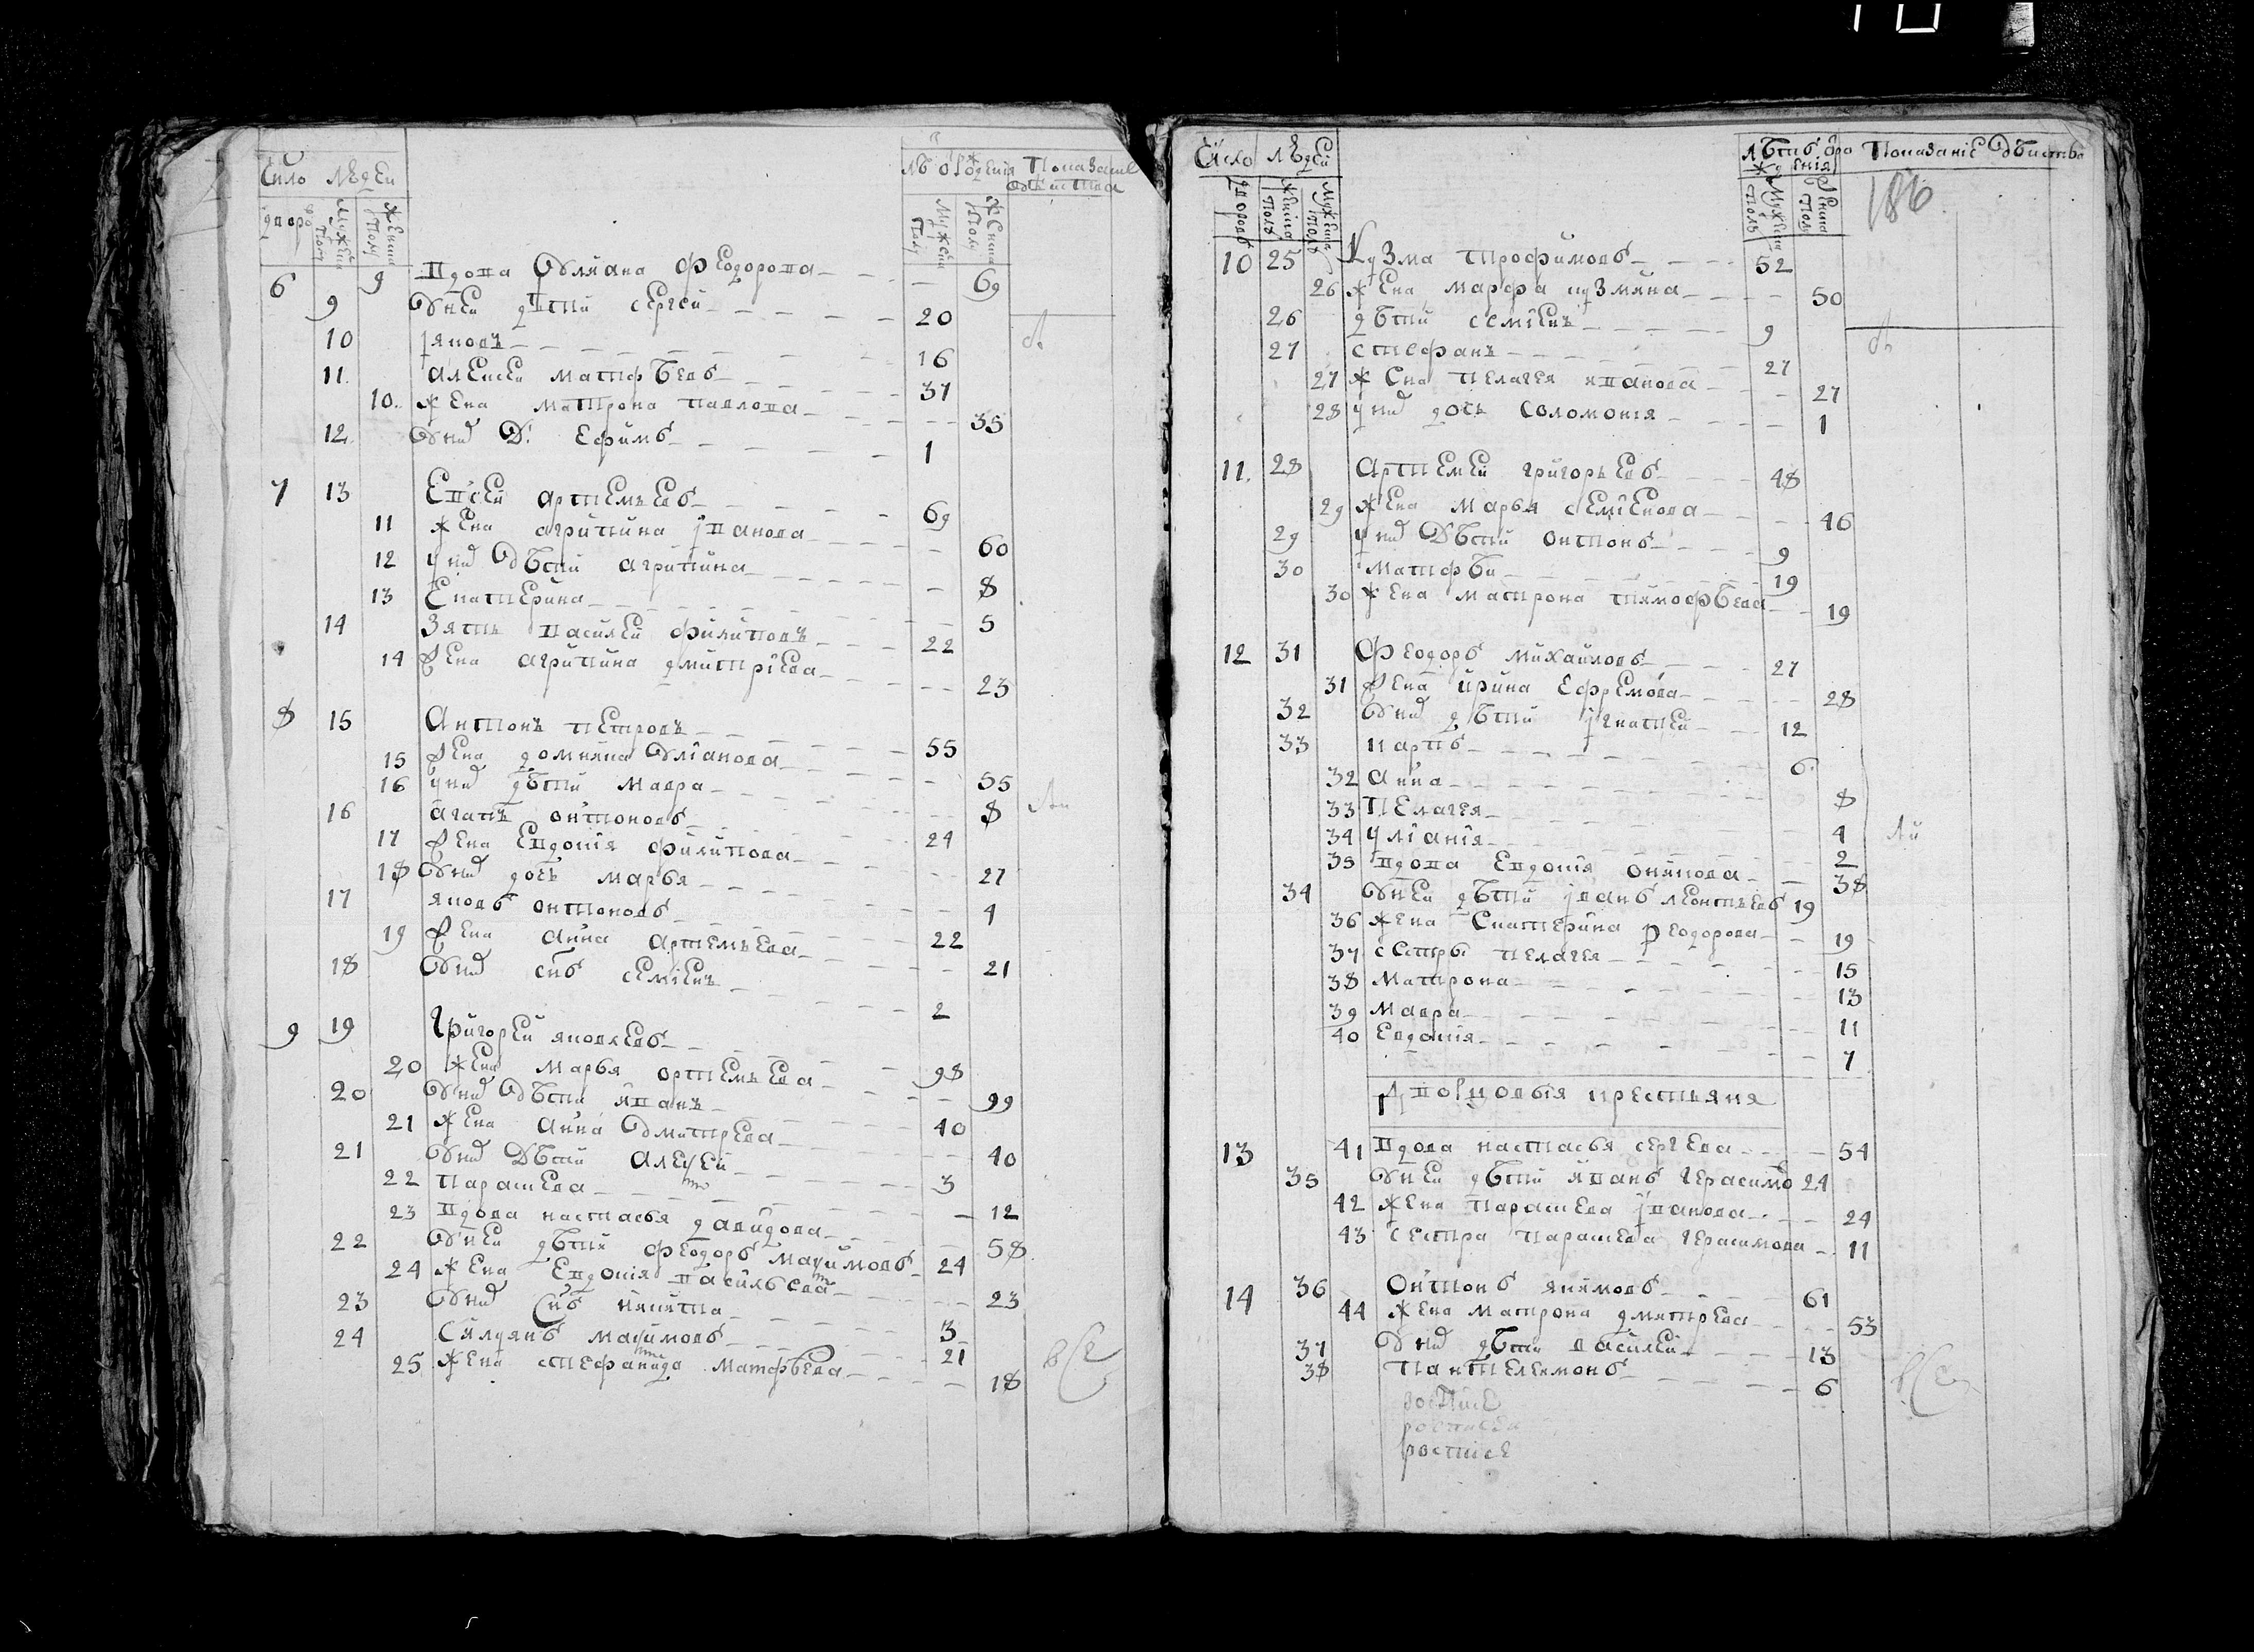 Число людей
лѣ ᲂ рождения Показание
действа
дворо
Мужеска Полу
Женска Полу
Мужеска Полу
Женска Полу
6 9 Вдова Ульяна Феодорова — 69
9 Унеи дѣти Сергеи 20
10 Яковъ 16
11 Алексеи Матфѣевъ 37
10 жена Матрона Павлова — 35
12 Унихъ Д: Ефимъ 1
7 13 Евсей Артемьевъ 69
11 жена агрипина іванова — 60
12 унихъ дѣти агрипина — 8
13 Екатерина — 5
14 Зять Василей Филиповъ 22
14 жена агрипина дмитріева — 23
8 15 Антонъ Петровъ 55
15 жена домника Улiанова — 55
16 унихъ дѣти Мавра — 8
16 агапъ онтоновъ 24
17 жена Евдокія Филипова — 27
18 Унихъ дочь марья — 4
17 яковъ онтоновъ 22
19 жена анна артемьева — 21
18 Унихъ снъ семiенъ 2
9 19 Григорей яковлевъ 98
20 жена Марья ортемьева — 99
20 Унихъ дѣти иванъ 40
21 жена анна дмитрева — 40
21 Унихъ дѣти Алеѯей 3
22 Парасковa — 12
23 Вдова настасья давидова — 58
22 Унеи дѣти феодоръ маѯимовъ 24
24 жена Евдокія васильева — 23
23 Унихъ снъ никита 3
24 Силуянъ маѯимовъ 21
25 жена стефанида Матфѣева — 18
Число людей
лѣтъ ᲂ рождения Показание дѣйства
186
дворовъ
Женска Полъ
Мужеска Полъ
Мужеска Полъ
Женска Полъ
10 25 Кузма трофимовъ 52
26 жена марфа кузмина — 50
26 дѣти семiенъ 9
27 стефанъ 27
27 жена пелагея иванова — 27
28 унихъ дочь соломонія — 1
11 28 Артемей григорьевъ 48
29 жена марья семiенова — 46
29 унихъ дѣти онтонъ 9
30 матфѣи 19
30 жена матрона тимофѣева — 19
12 31 Феодоръ михаиловъ 27
31 жена ирина ефремова — 28
32 Унихъ дѣти игнатей 12
33 карпъ 6
32 анна — 8
33 пелагея — 4
34 улiанiя — 2
35 вдова евдокія оникова — 38
34 Унеи дѣти іванъ леонтьевъ 19
36 жена екатерина феодорова — 19
37 сестры пелагея — 15
38 Матрона — 13
39 Мавра — 11
40 Евдокія — 7
Дворцовыя крестьяня
13 41 Вдова настасья сергева — 54
35 Унеи дѣти иванъ герасимо 24
42 жена парасковa іванова — 24
43 сестра парасковa герасимова — 11
14 36 Онтонъ якимовъ 61
44 жена матрона дмитрева — 53
37 Унихъ дѣти василей 13
38 пантелемонъ 6